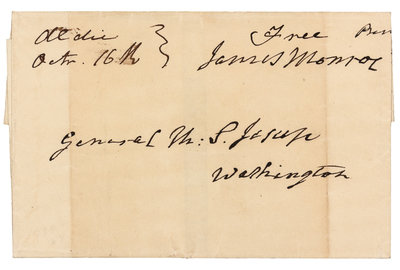 Aldie Free
Octr. 16th James Monroe
General Th: S. Jesup
Washington